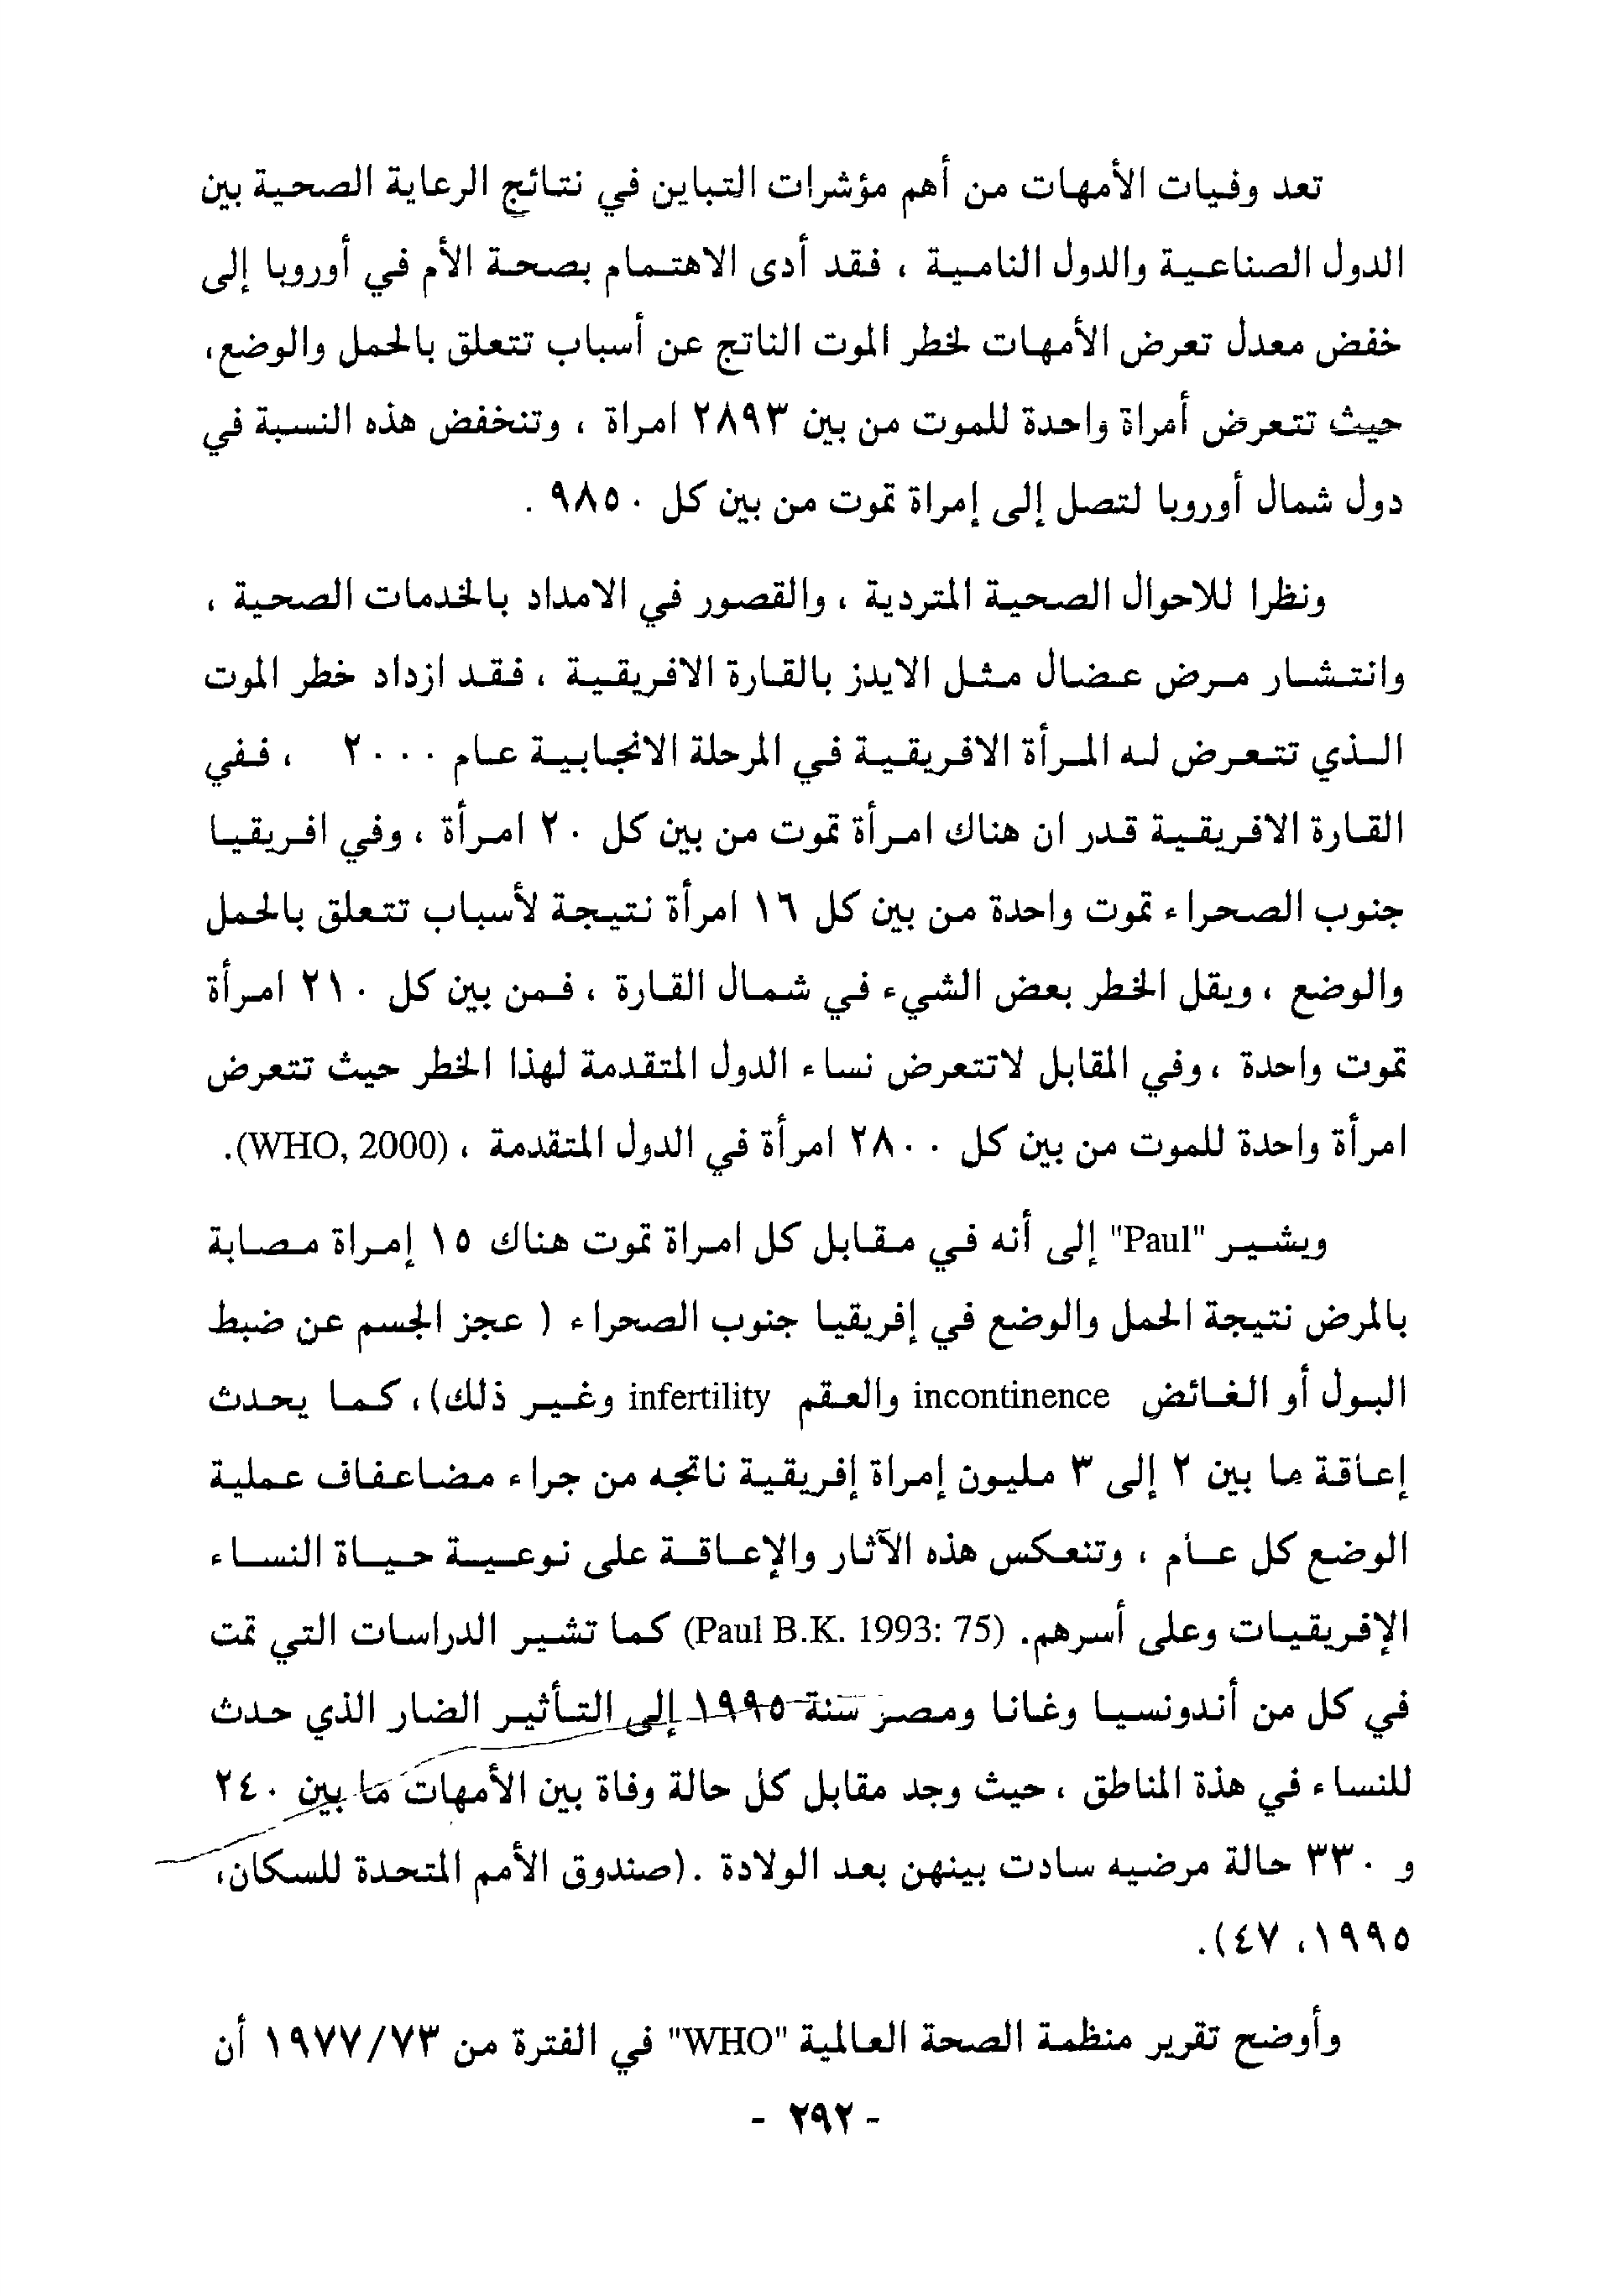 تعد وفيات الأمهات من أهم مؤشرات التباين في نتائج الرعاية الصحية بين
الدول الصناعية والدول النامية ، فقد أدى الاهتمام بصحة الأم في أوروبا إلى
خفض معدل تعرض الأمهات لخطر الموت الناتج عن أسباب تتعلق بالحمل والوضع،
حيث تتعرض أمراة واحدة للموت من بين ٢٨٩٣ امراة ، وتنخفض هذه النسبة في
دول شمال أوروبا لتصل إلى إمراة تموت من بين كل ٩٨٥٠ .
ونظرا للاحوال الصحية المتردية ، والقصور في الامداد بالخدمات الصحية ،
وانتشار مرض عضال مثل الايدز بالقارة الافريقية ، فقد ازداد خطر الموت
الذي تتعرض له المرأة الافريقية في المرحلة الانجابية عام ٢٠٠٠ ، ففي
القارة الافريقية قدر ان هناك امرأة تموت من بين كل ٢٠ امرأة ، وفي افريقيا
جنوب الصحراء تموت واحدة من بين كل ١٦ امرأة نتيجة لأسباب تتعلق بالحمل
والوضع ، ويقل الخطر بعض الشيء في شمال القارة ، فمن بين كل ٢١٠ امرأة
تموت واحدة ، وفي المقابل لاتتعرض نساء الدول المتقدمة لهذا الخطر حيث تتعرض
امرأة واحدة للموت من بين كل ٢٨٠٠ امرأة في الدول المتقدمة ، (WHO, 2000).
ويشير "Paul" إلى أنه في مقابل كل امراة تموت هناك ١٥ إمراة مصابة
بالمرض نتيجة الحمل والوضع في إفريقيا جنوب الصحراء ( عجز الجسم عن ضبط
البول أو الغائض incontinence والعقم infertility وغير ذلك)، كما يحدث
إعاقة ما بين ٢ إلى ٣ مليون إمراة إفريقية ناتجه من جراء مضاعفاف عملية
الوضع كل عام ، وتنعكس هذه الآثار والإعاقة على نوعية حياة النساء
الإفريقيات وعلى أسرهم. (Paul B.K. 1993: 75) كما تشير الدراسات التي تمت
في كل من أندونسيا وغانا ومصر سنة ١٩٩٥ إلى التأثير الضار الذي حدث
للنساء في هذة المناطق ، حيث وجد مقابل كل حالة وفاة بين الأمهات ما بين ٢٤٠
و ٣٣٠ حالة مرضيه سادت بينهن بعد الولادة .(صندوق الأمم المتحدة للسكان،
١٩٩٥، ٤٧).
وأوضح تقرير منظمة الصحة العالمية "WHO" في الفترة من ١٩٧٧/٧٣ أن
- ٢٩٢ -